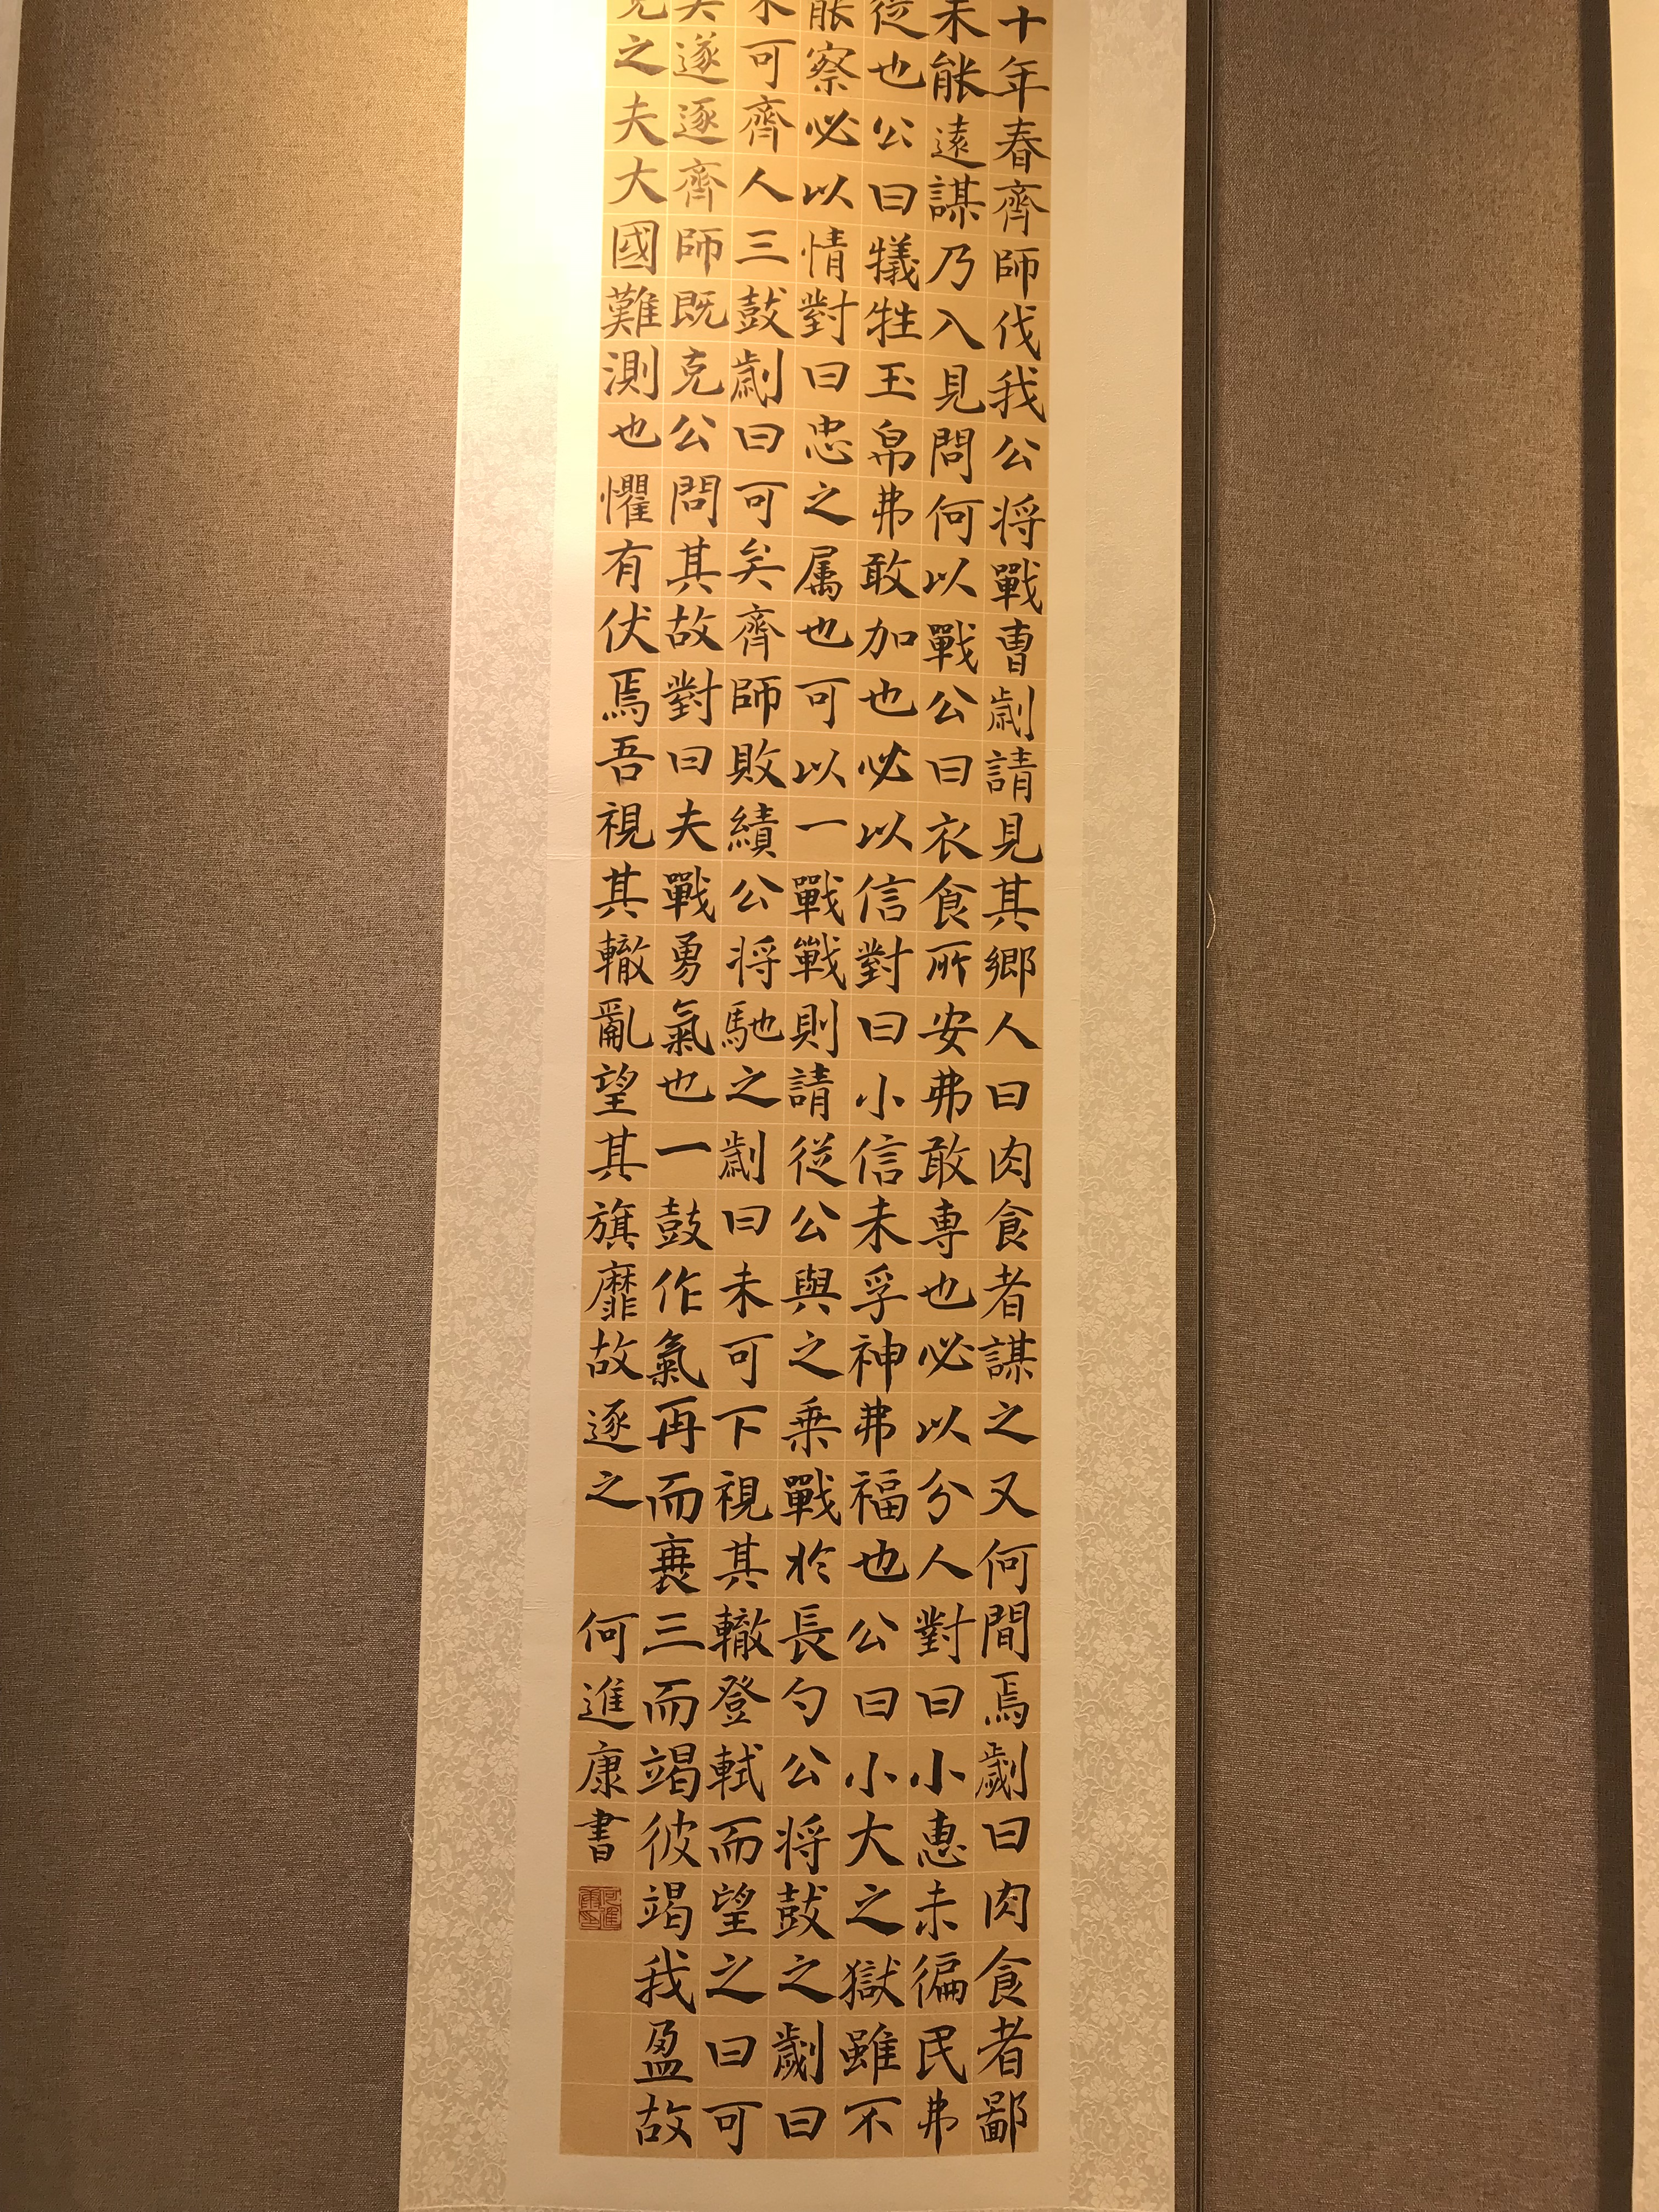 十年春齊師伐我公将戰曹劌請見其鄉人曰肉食者謀之又何間焉劌曰肉食者鄙
未能遠謀乃入見問何以戰公曰衣食所安弗敢専也必以分人對曰小惠未徧民弗
從也公曰犠牲玉帛弗敢加也必以信對曰小信未孚神弗福也公曰小大之獄雖不
能察必以情對曰忠之属也可以一戰戰則請從公與之乗戰於長勺公将鼓之劌曰
未可齊人三鼓劌曰可矣齊師敗績公将馳之劌曰未可下視其轍登軾而望之曰可
矣遂逐齊師既克公問其故對曰夫戰勇氣也一鼓作氣再而衰三而竭彼竭我盈故
克之夫大國難測也懼有伏焉吾視其轍亂望其旗靡故逐之
何進康書